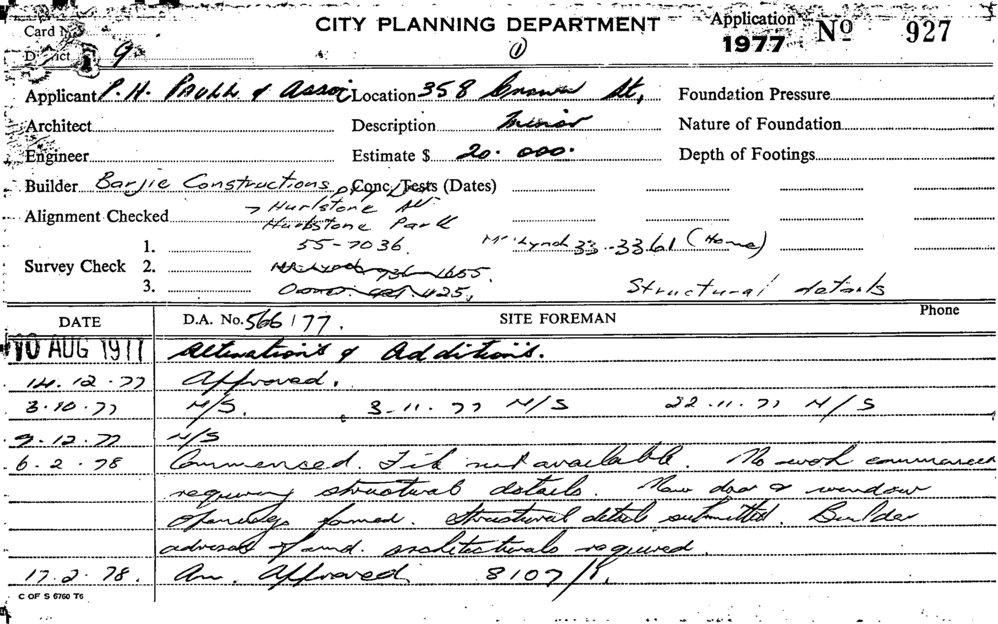 Card No
CITY PLANNING DEPARTMENT
Application 1977 No 927
District 9
1
Applicant P. H. & Assoc Location 358 Crown St, Foundation Pressure
Architect Description Minor Nature of Foundation
Engineer Estimate $ 20.000. Depth of Footings
Builder Barjie Constructions Conc. Tests (Dates)
Alignment Checked 7 Hurlstone Av.
Hurlstone Park
1. 55-7036 Mr Lynch 33-3361 (Home)
Survey Check 2.
3. Structural details
DATE D.A. No. 566/77. SITE FOREMAN Phone
10 AUG 1977 Alterations & Additions.
14.12.77 Approved.
3.10.77 N/S. 3.11.77 N/S 22.11.77 N/S
9.12.77 N/S
6.2.78 Commenced. File not available. No work commenced
requiring structural details. New door & window
openings formed. Structural details submitted. Builder
advised amd. architecturals required.
17.2.78. Am. Approved 8107/
C OF S 6760 T6